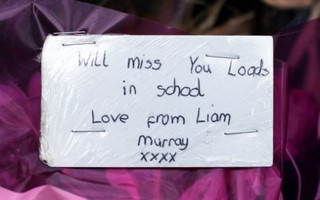 Will miss You Loads
in school
Love from Liam
murray
xxxx